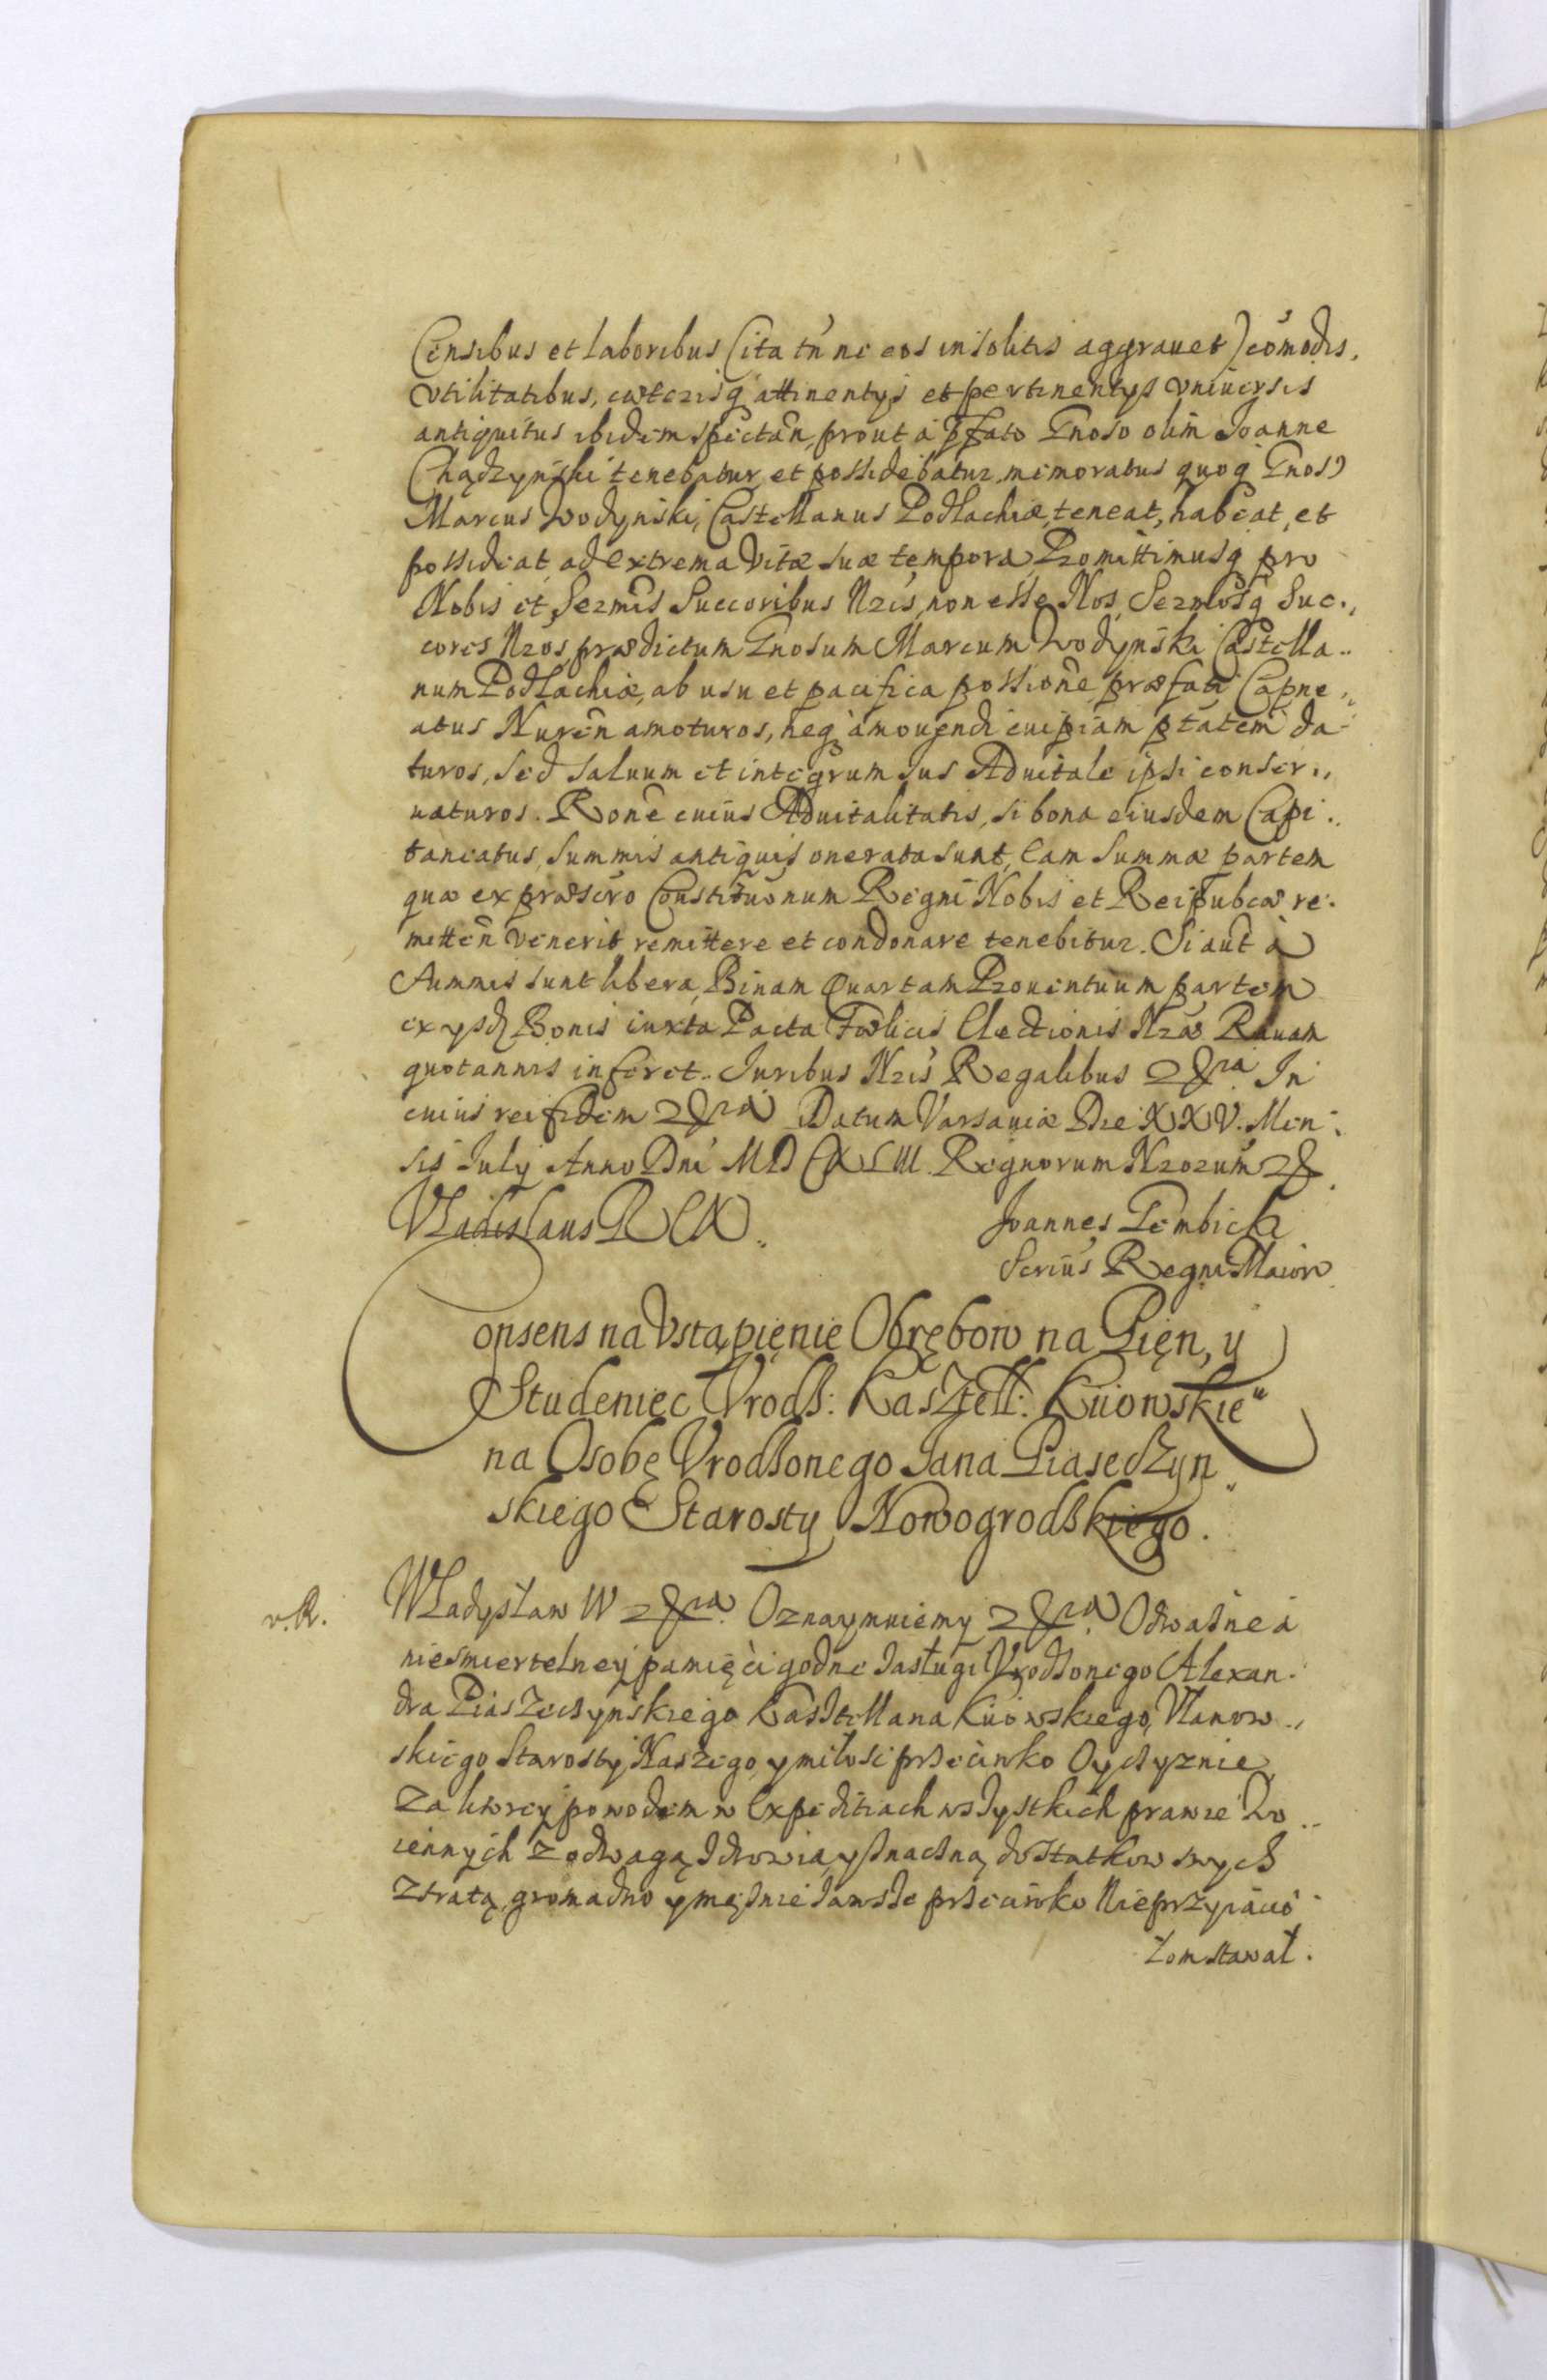 Censibus et laboribus (ita tñ ne eos insolitis aggrauet) com̃odis,
vtilitatibus, cæterisq̃ attinentys et pertinentys vniuersis
antiquitus ibidem spectañ, prout à p̃fato Gnoso olim Joanne
Chądzynski tenebatur et possidebatur, memoratus quoq̃ Gnosꝰ
Marcus Wodynski, Castellanus Podlachiæ, teneat, habeat, et
possideat, ad extrema vitæ suæ tempora, Promittimusq̃ pro
Nobis et Sermis Succoribus Nris, non esse Nos, Sermosq̃ Suc„
cores Nros, prædictum Gnosum Marcum Wodynski Castella„
num Podlachiæ, ab usu et pacifica possione præfati Capne„
atus Nureñ amoturos, neq̃ amouendi cuipiam ptatem da„
turos, sed saluum et integrum Jus Aduitale ipsi conser„
uaturos. Rone cuius Aduitalitatis, si bona eiusdem Capi„
taneatus, summis antiquis onerata sunt, Eam summæ partem
quæ ex præscro Constituõnum Regni Nobis et Reipubcæ re„
mitteñ venerit remittere et condonare tenebitur. Si aut à
summis sunt libera, Binam Quartam Prouentuum partem
ex ysd Bonis iuxta Pacta Fælicis Electionis Nræ Rauam
quotannis inferet. Juribus Nris Regalibus &ra. In
cuius rei fidem &ra Datum Varsauiæ Die XXV. Men„
sis July Anno Dni MDCXLIII. Regnorum Nrorum &.
Vladislaus REX.
Joannes Gembicki
Scrius Regni Maior
Consens na Vstąpięnie Obrębow na Pięn, y
Studeniec Vrodz: Kasztell: Kiiowskie°
na Osobę Vrodzonego Jana Piaseczyn„
skiego Starosty Nowogrodzkiego.
v.R.
Władysław IV &ra. Oznaymuiemy &ra. Odważne à
niesmiertelney pamięći godne zasługi Vrodzonego Alexan„
dra Piaszeczynskiego Kasztellana Kiiowskiego, Vlanow„
skiego Starosty Naszego, y miłosć przećiwko Oyczyznie,
za ktorey powodem w Expeditiach wszystkich prawie Wo„
iennych z odwagą zdrowia, y znaczną dostatkow swych
ztratą, gromadno y mężnie zawsze przećiwko Nieprzyiació„
łom stawał.